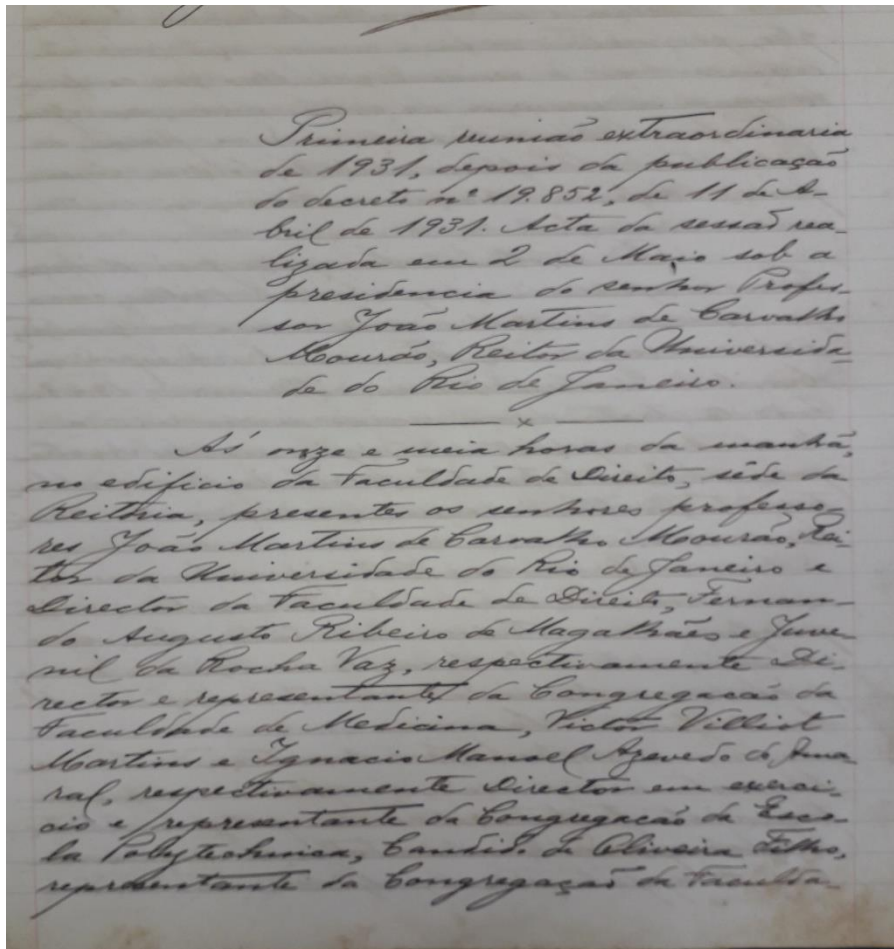 Primeira reunião extraordinaria
de 1931, depois da publicação
do decreto nº 19.852, de 11 de A-
bril de 1931. Acta da sessão rea-
lizada em 2 de Maio sob a
presidencia do senhor Profes-
sor João Martins de Carvalho
Mourão, Reitor da Universida-
de do Rio de Janeiro.
x
Ás onze e meia horas da manhã,
no edificio da Faculdade de Direito, séde da
Reitoria, presentes os senhores professo-
res João Martins de Carvalho Mourão, Rei-
tor da Universidade do Rio de Janeiro e
Director da Faculdade de Direito, Fernan-
do Augusto Ribeiro de Magalhães e Juve-
nil da Rocha Vaz, respectivamente Di-
rector e representante da Congregacão da
Faculdade de Medicina, Victor Villiot
Martins e Ignacio Manoel Azevedo do Ama-
ral, respectivamente Director em exerci-
cio e representante da Congregacão da Esco-
la Polytechnica, Candido de Oliveira Filho,
representante da Congregação da Faculda-